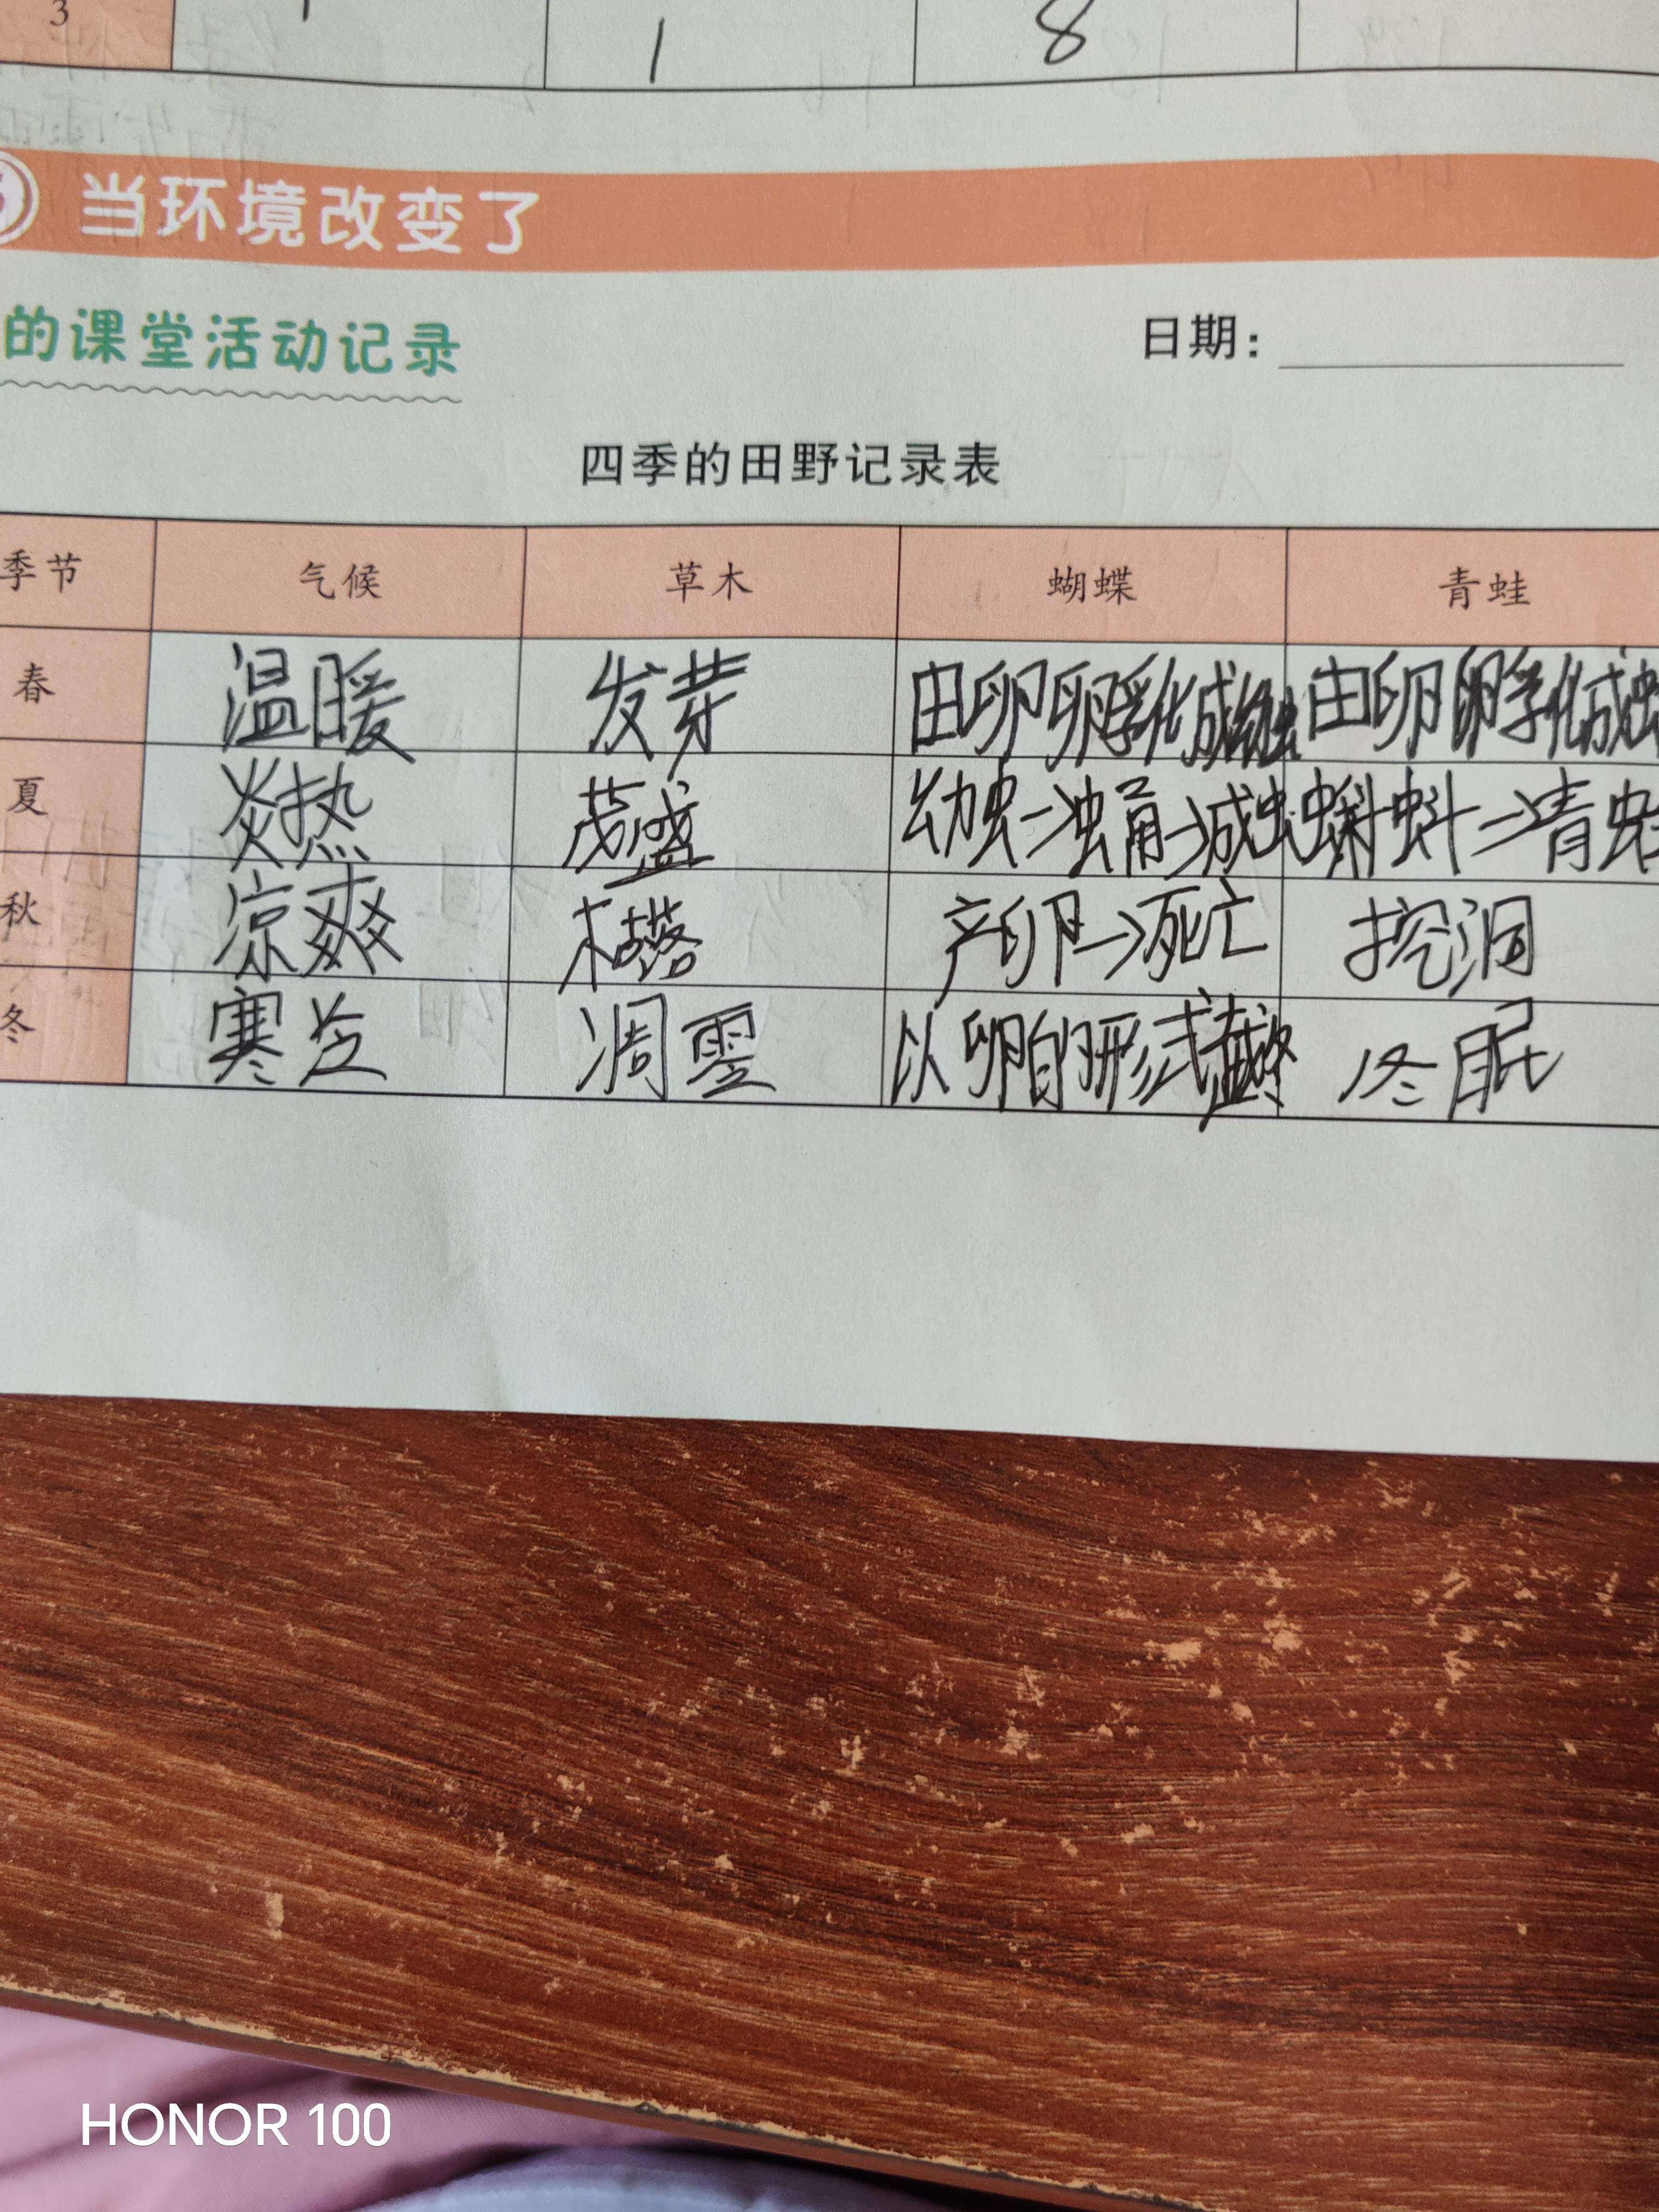 3 1 8
当环境改变了
的课堂活动记录 日期：
四季的田野记录表
季节 气候 草木 蝴蝶 青蛙
春 温暖 发芽 由卵孵化成幼虫 由卵孵化成
夏 炎热 茂盛 幼虫→蛹→成虫 蝌蚪→青蛙
秋 凉爽 枯落 产卵→死亡 挖洞
冬 寒冷 凋零 以卵的形式越冬 冬眠
HONOR 100